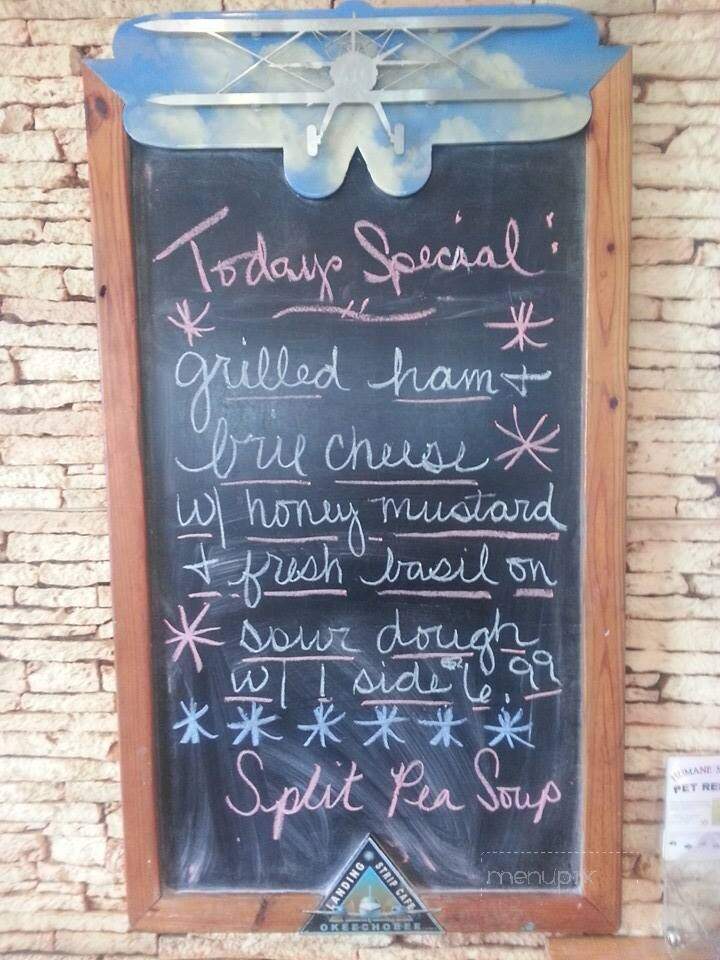 Todays Special:
grilled ham +
brie cheese
w/ honey mustard
+ fresh basil on
sour dough
w/ 1 side 6.99
Split Pea Soup
LANDING STRIP CAFE
OKEECHOBEE
menupix
HUMANE
PET RE